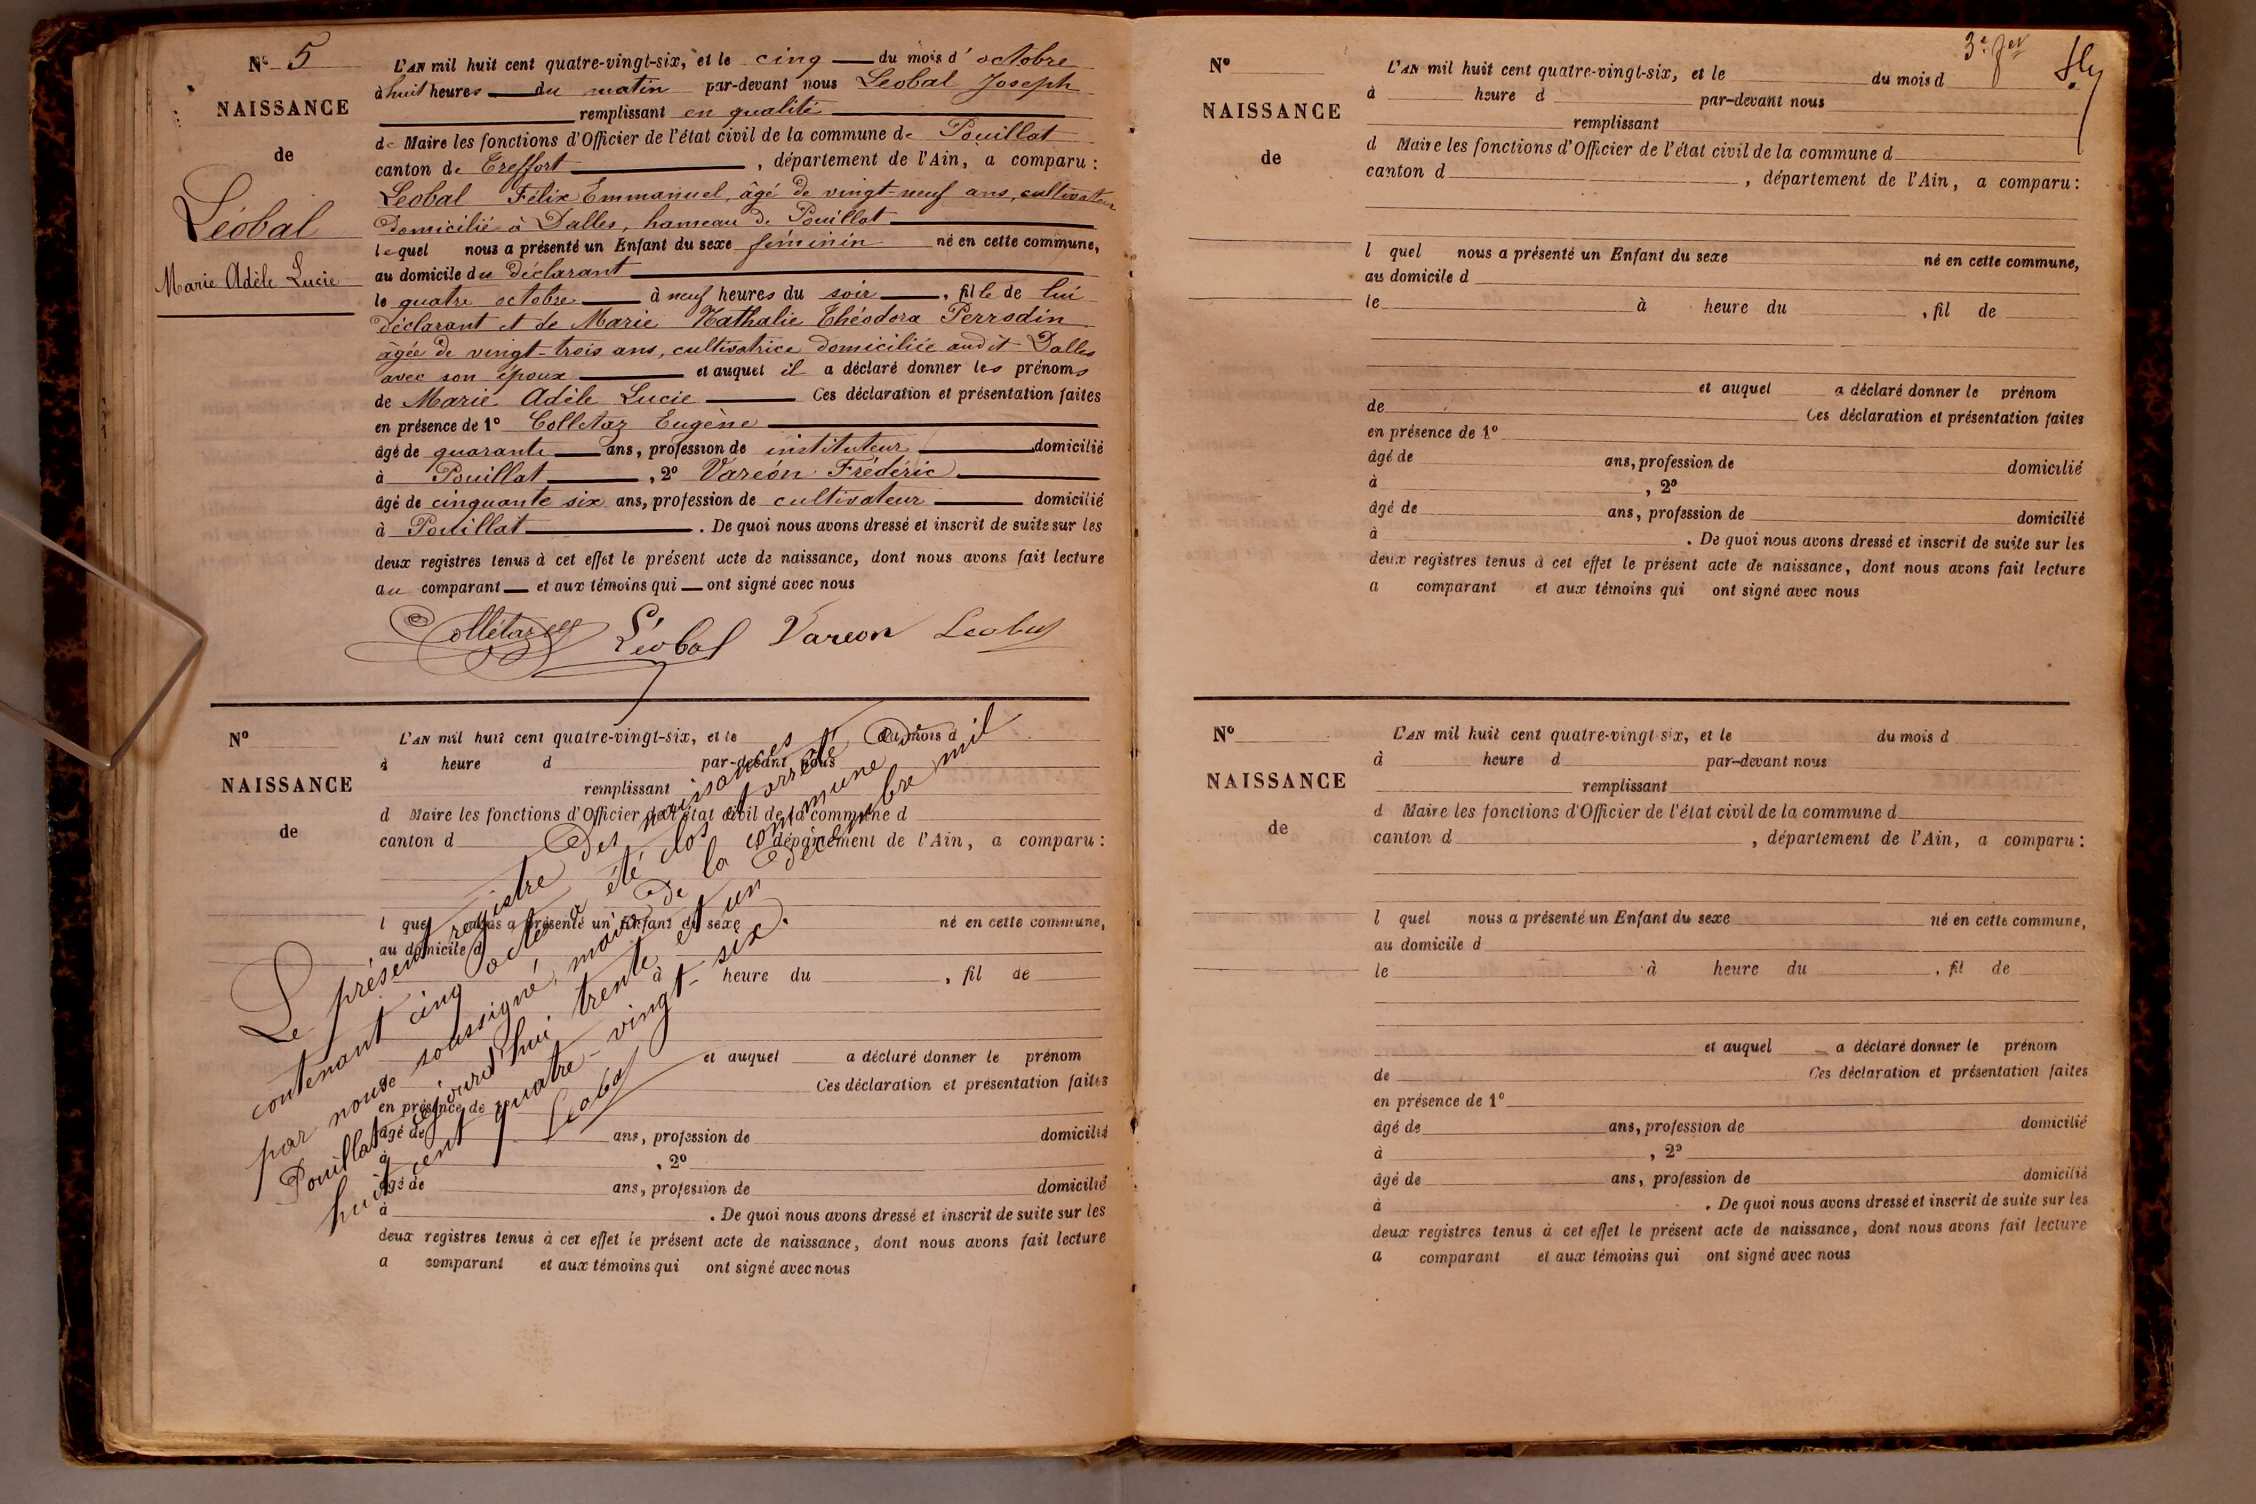 N° 5
NAISSANCE
de
Léobal
Marie Adèle Lucie
L'AN mil huit cent quatre-vingt-six, et le cinq du mois d'octobre
à huit heures du matin par-devant nous Léobal Joseph
remplissant en qualité
de Maire les fonctions d'Officier de l'état civil de la commune de Pouillat
canton de Treffort, département de l'Ain, a comparu :
Léobal Félix Emmanuel, âgé de vingt-neuf ans, cultivateur
domicilié à Dalles, hameau de Pouillat
lequel nous a présenté un Enfant du sexe féminin né en cette commune,
au domicile du déclarant
le quatre octobre à neuf heures du soir, fille de lui
déclarant et de Marie Nathalie Théodora Perrodin
âgée de vingt-trois ans, cultivatrice domiciliée audit Dalles
avec son époux et auquel il a déclaré donner les prénoms
de Marie Adèle Lucie Ces déclaration et présentation faites
en présence de 1° Colletaz Eugène
âgé de quarante ans, profession de instituteur domicilié
à Pouillat, 2° Varéon Frédéric
âgé de cinquante six ans, profession de cultivateur domicilié
à Pouillat. De quoi nous avons dressé et inscrit de suite sur les
deux registres tenus à cet effet le présent acte de naissance, dont nous avons fait lecture
au comparant et aux témoins qui ont signé avec nous
Collétaz Léobal Vareon Leobal
N°
NAISSANCE
de
L'AN mil huit cent quatre-vingt-six, et le du mois d
à heure d par-devant nous
remplissant
d Maire les fonctions d'Officier de l'état civil de la commune d
canton d , département de l'Ain, a comparu :
l quel nous a présenté un Enfant du sexe né en cette commune,
au domicile d
à heure du , fil de
et auquel a déclaré donner le prénom
de Ces déclaration et présentation faites
en présence de 1°
âgé de ans, profession de domicilié
à , 2°
âgé de ans, profession de domicilié
à . De quoi nous avons dressé et inscrit de suite sur les
deux registres tenus à cet effet le présent acte de naissance, dont nous avons fait lecture
a comparant et aux témoins qui ont signé avec nous
Le présent registre des naissances
contenant cinq actes a été clos et arrêté
par nous soussigné, maire de la commune de
Pouillat cejourd'hui trente et un décembre mil
huit cent quatre-vingt-six.
Leobal
3e fer
N°
NAISSANCE
de
L'AN mil huit cent quatre-vingt-six, et le du mois d
à heure d par-devant nous
remplissant
d Maire les fonctions d'Officier de l'état civil de la commune d
canton d , département de l'Ain, a comparu :
l quel nous a présenté un Enfant du sexe né en cette commune,
au domicile d
le à heure du , fil de
et auquel a déclaré donner le prénom
de Ces déclaration et présentation faites
en présence de 1°
âgé de ans, profession de domicilié
à , 2°
âgé de ans, profession de domicilié
à . De quoi nous avons dressé et inscrit de suite sur les
deux registres tenus à cet effet le présent acte de naissance, dont nous avons fait lecture
a comparant et aux témoins qui ont signé avec nous
N°
NAISSANCE
de
L'AN mil huit cent quatre-vingt-six, et le du mois d
à heure d par-devant nous
remplissant
d Maire les fonctions d'Officier de l'état civil de la commune d
canton d , département de l'Ain, a comparu :
l quel nous a présenté un Enfant du sexe né en cette commune,
au domicile d
le à heure du , fil de
et auquel a déclaré donner le prénom
de Ces déclaration et présentation faites
en présence de 1°
âgé de ans, profession de domicilié
à , 2°
âgé de ans, profession de domicilié
à . De quoi nous avons dressé et inscrit de suite sur les
deux registres tenus à cet effet le présent acte de naissance, dont nous avons fait lecture
a comparant et aux témoins qui ont signé avec nous